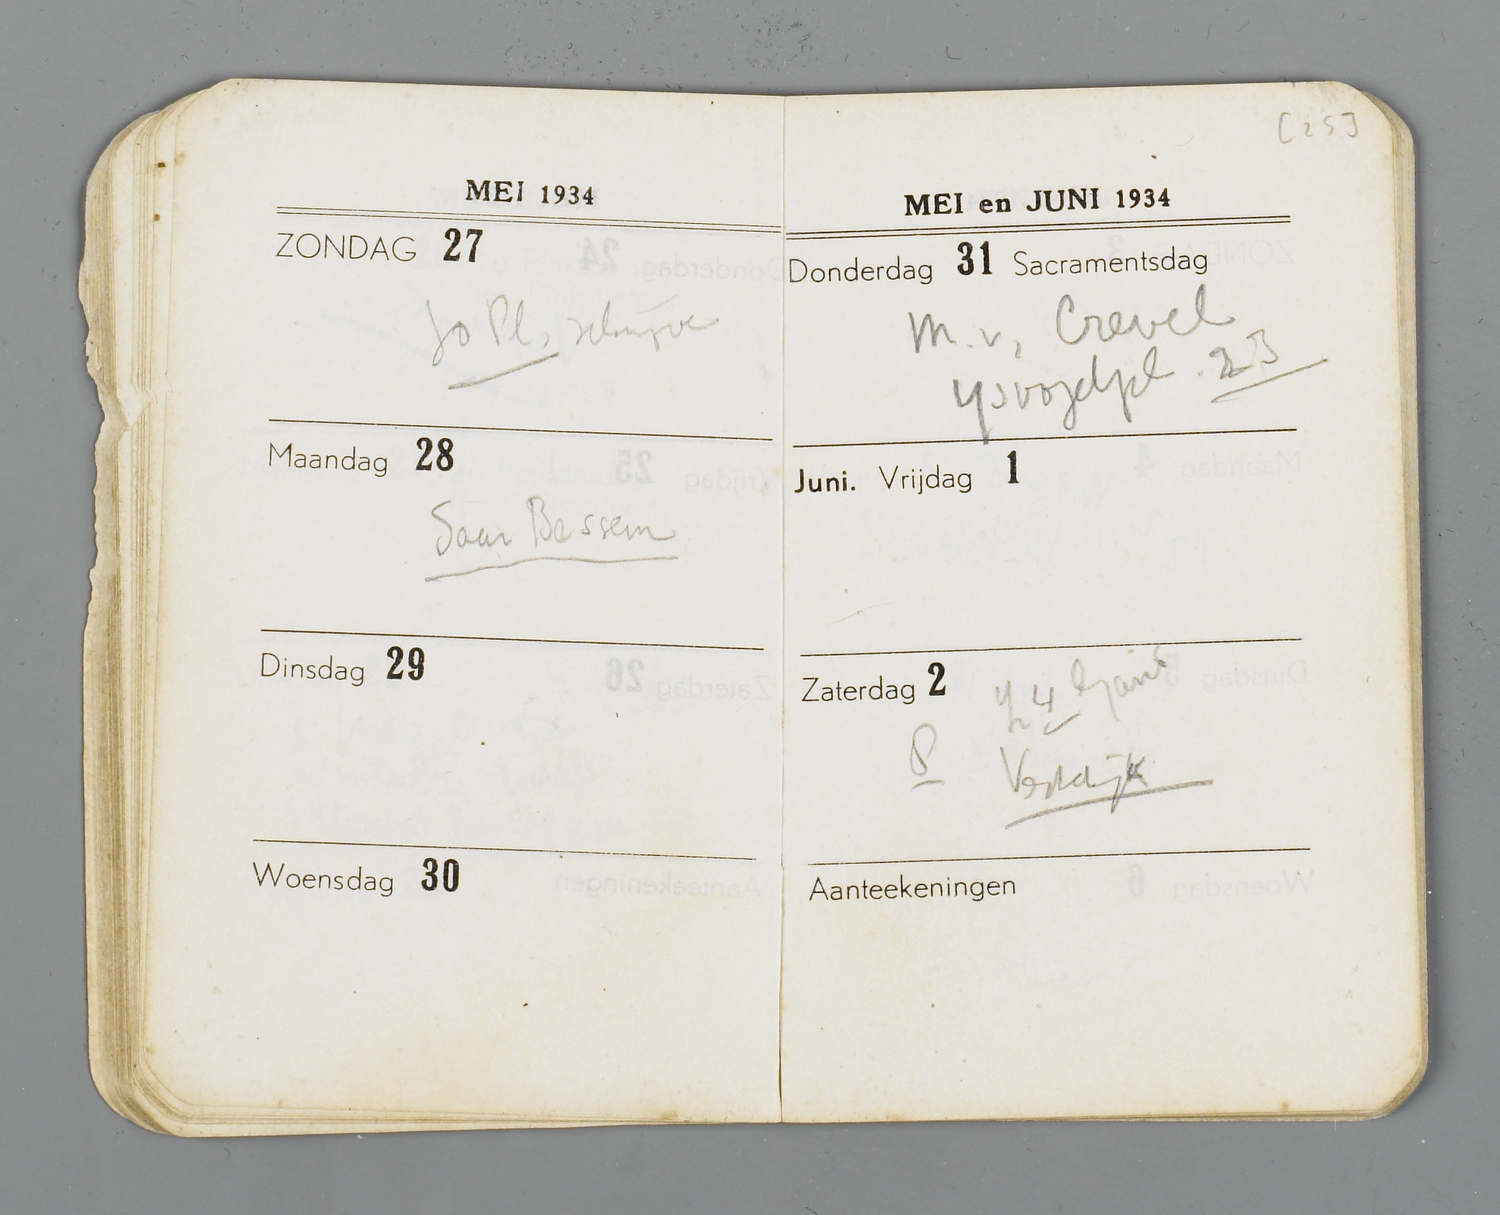 MEI 1934
ZONDAG 27
Jo Pl.
Maandag 28
Saar Bessem
Dinsdag 29
Woensdag 30
[25]
MEI en JUNI 1934
Donderdag 31 Sacramentsdag
M. v. Crevel
Ysvogelpl. 23
Juni. Vrijdag 1
Zaterdag 2
½ 4
8 Vestdijk
Aanteekeningen